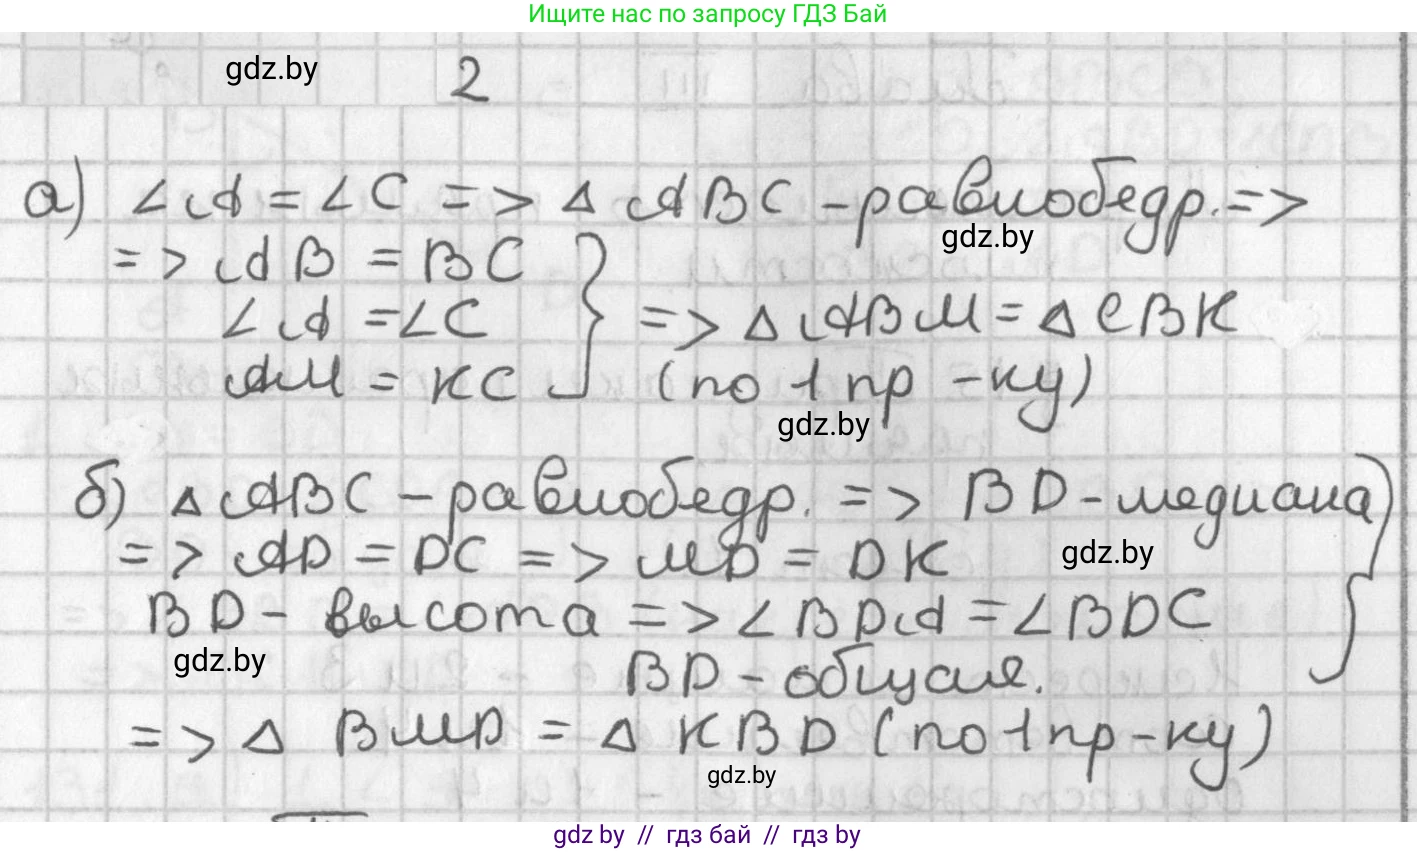 Ищите нас по запросу ГДЗ Бай
gdz.by
2
а) ∠A = ∠C => △ ABC - равнобедр. =>
gdz.by
=> AB = BC
∠A = ∠C
AM = KC
} => △ ABM = △ CBK
(по 1 пр-ку)
gdz.by
б) △ ABC - равнобедр. => BD - медиана
=> AD = DC => MD = DK
gdz.by
BD - высота => ∠BDA = ∠BDC
gdz.by
BD - общая. }
=> △ BMD = △ KBD (по 1 пр-ку)
gdz.by
gdz.by // гдз бай // gdz.by